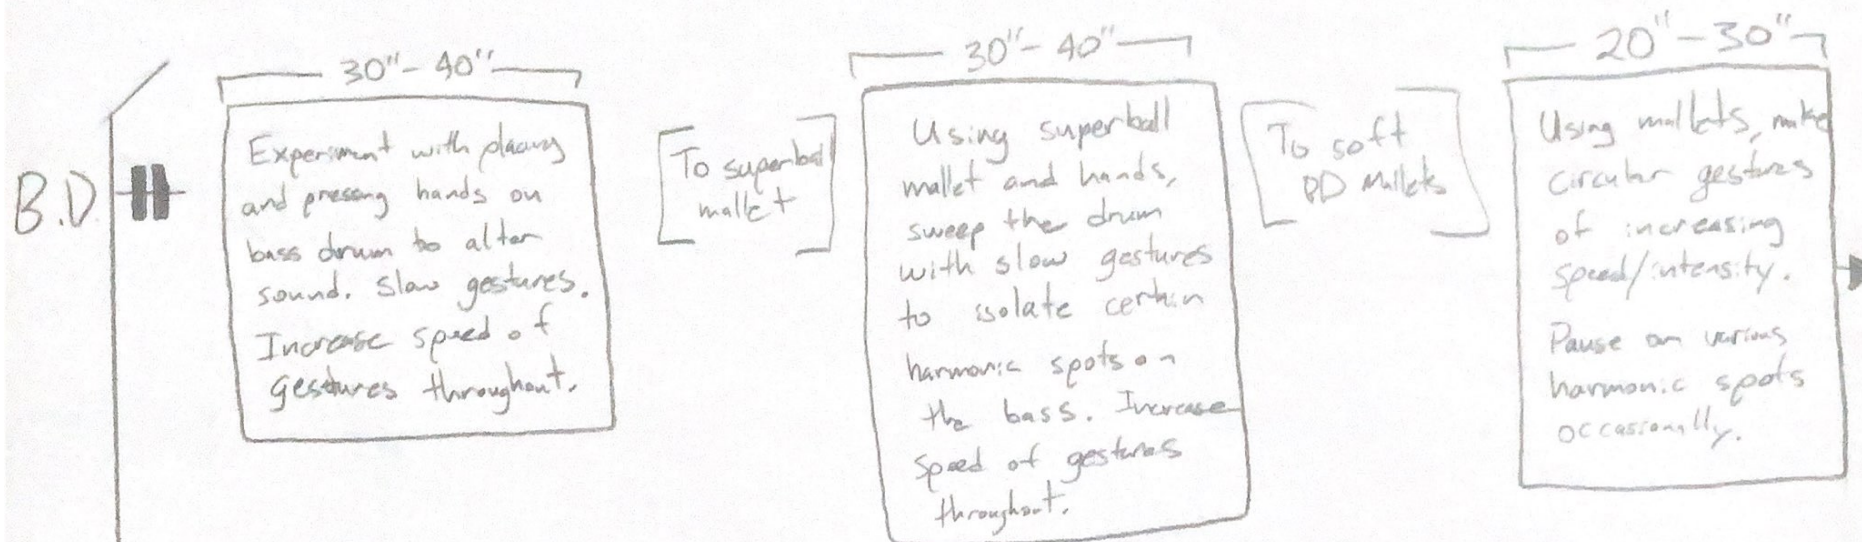 B.D.
30"-40"
Experiment with placing
and pressing hands on
bass drum to alter
sound. Slow gestures.
Increase speed of
gestures throughout.
To superball
mallet
30"-40"
Using superball
mallet and hands,
sweep the drum
with slow gestures
to isolate certain
harmonic spots on
the bass. Increase
speed of gestures
throughout.
To soft
BD Mallets
20"-30"
Using mallets, make
circular gestures
of increasing
speed/intensity.
Pause on various
harmonic spots
occassionally.